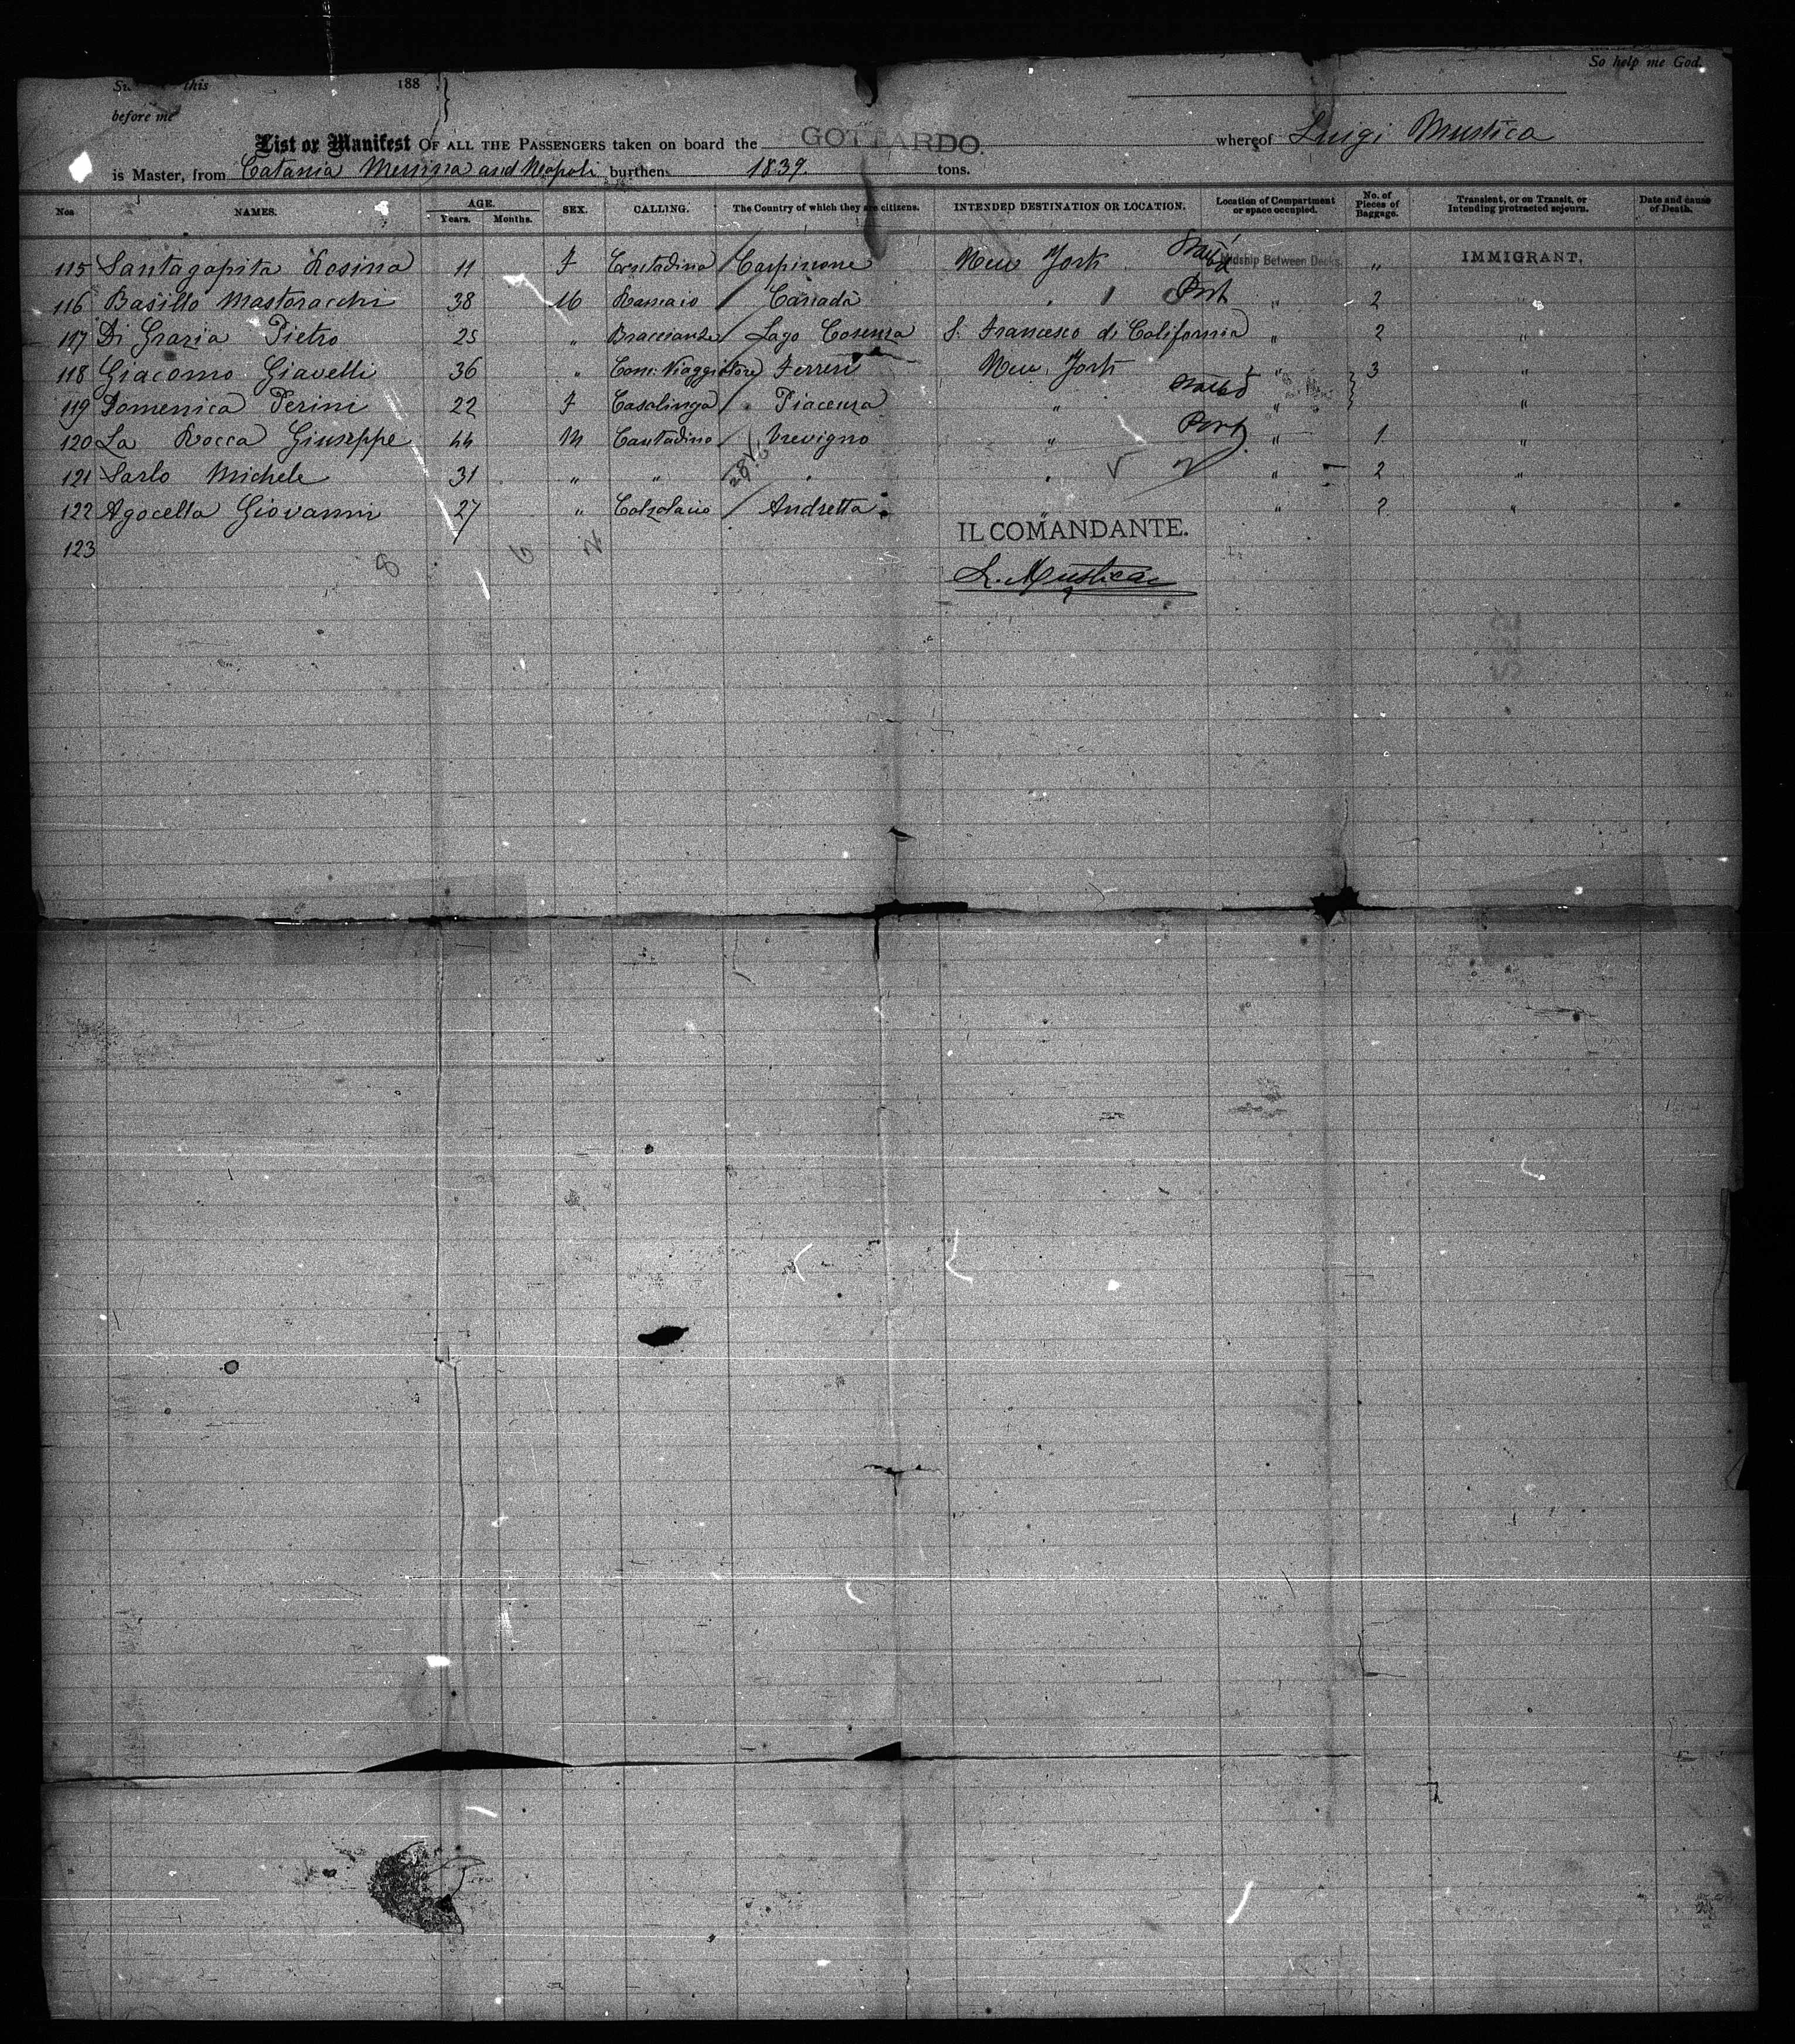 So help me God.
this 188
before me
List or Manifest OF ALL THE PASSENGERS taken on board the GOTTARDO. whereof Luigi Mustica
is Master, from Catania Messina and Napoli burthen 1839. tons.
Nos NAMES. AGE. Years. Months. SEX. CALLING. The Country of which they are citizens. INTENDED DESTINATION OR LOCATION. Location of Compartment or space occupied. No. of Pieces of Baggage. Transient, or on Transit, or Intending protracted sojourn. Date and cause of Death.
115 Santagapita Rosina 11 F Contadina Carpinone New York Starbd Midship Between Decks. " IMMIGRANT.
116 Basillo Mastoracchi 38 M Ramaio Canada " Port " 2 "
117 Di Grazia Pietro 25 " Bracciante Lago Cosenza S. Francesco di California " 2 "
118 Giacomo Giavelli 36 " Com: Viaggiatore Ferrere New York " 3 "
119 Domenica Perini 22 F Casalinga Piacenza " Starbd " "
120 La Rocca Giuseppe 44 M Contadino Trevigno " Port " 1 "
121 Sarlo Michele 31 " " " " " 2 "
122 Agocella Giovanni 27 " Calzolaio Andretta " " 2 "
123
IL COMANDANTE.
L. Mustica